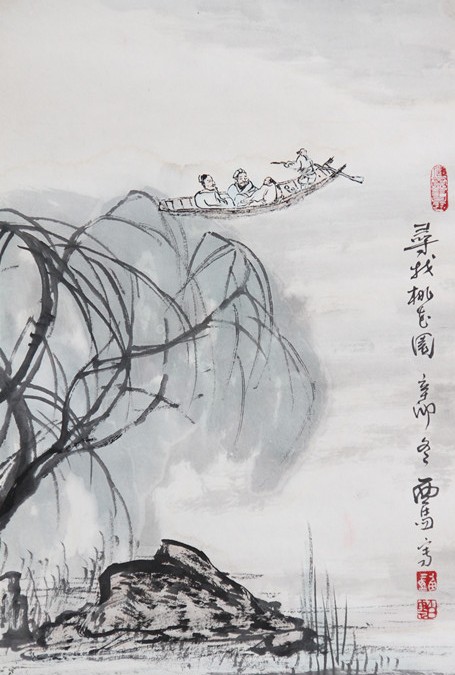 尋找桃花園 辛卯冬 西馬寫